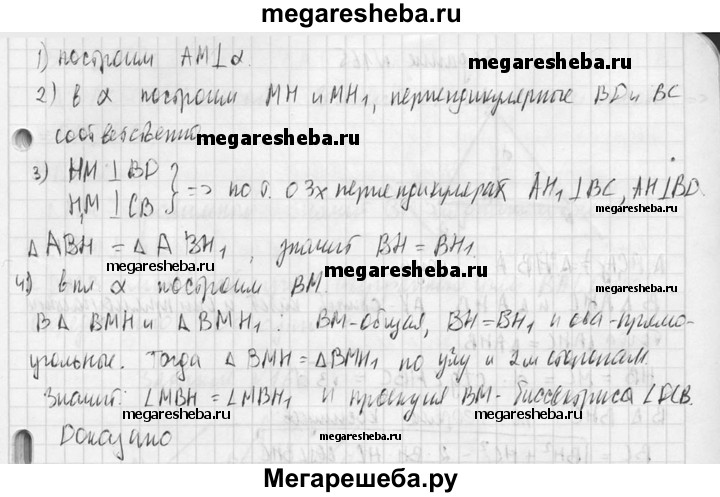 megaresheba.ru
1) построим AM⊥α.
megaresheba.ru
2) в α построим MH и MH₁, перпендикулярные BD и BC
соответственно
megaresheba.ru
3) HM ⊥ BD
H₁M ⊥ CB } => по т. о 3х перпендикулярах AH₁⊥BC, AH⊥BD
megaresheba.ru
△ABH = △ABH₁, значит BH = BH₁.
megaresheba.ru
megaresheba.ru
4) в пл α построим BM.
В △ BMH и △BMH₁: BM-общая, BH=BH₁ и оба-прямо-
угольные. Тогда △BMH = △BMH₁ по углу и 2м сторонам.
megaresheba.ru
Значит: ∠MBH = ∠MBH₁ и проекция BM- биссектриса ∠DCB.
megaresheba.ru
Доказано
megaresheba.ru
megaresheba.ru
Мегарешеба.ру